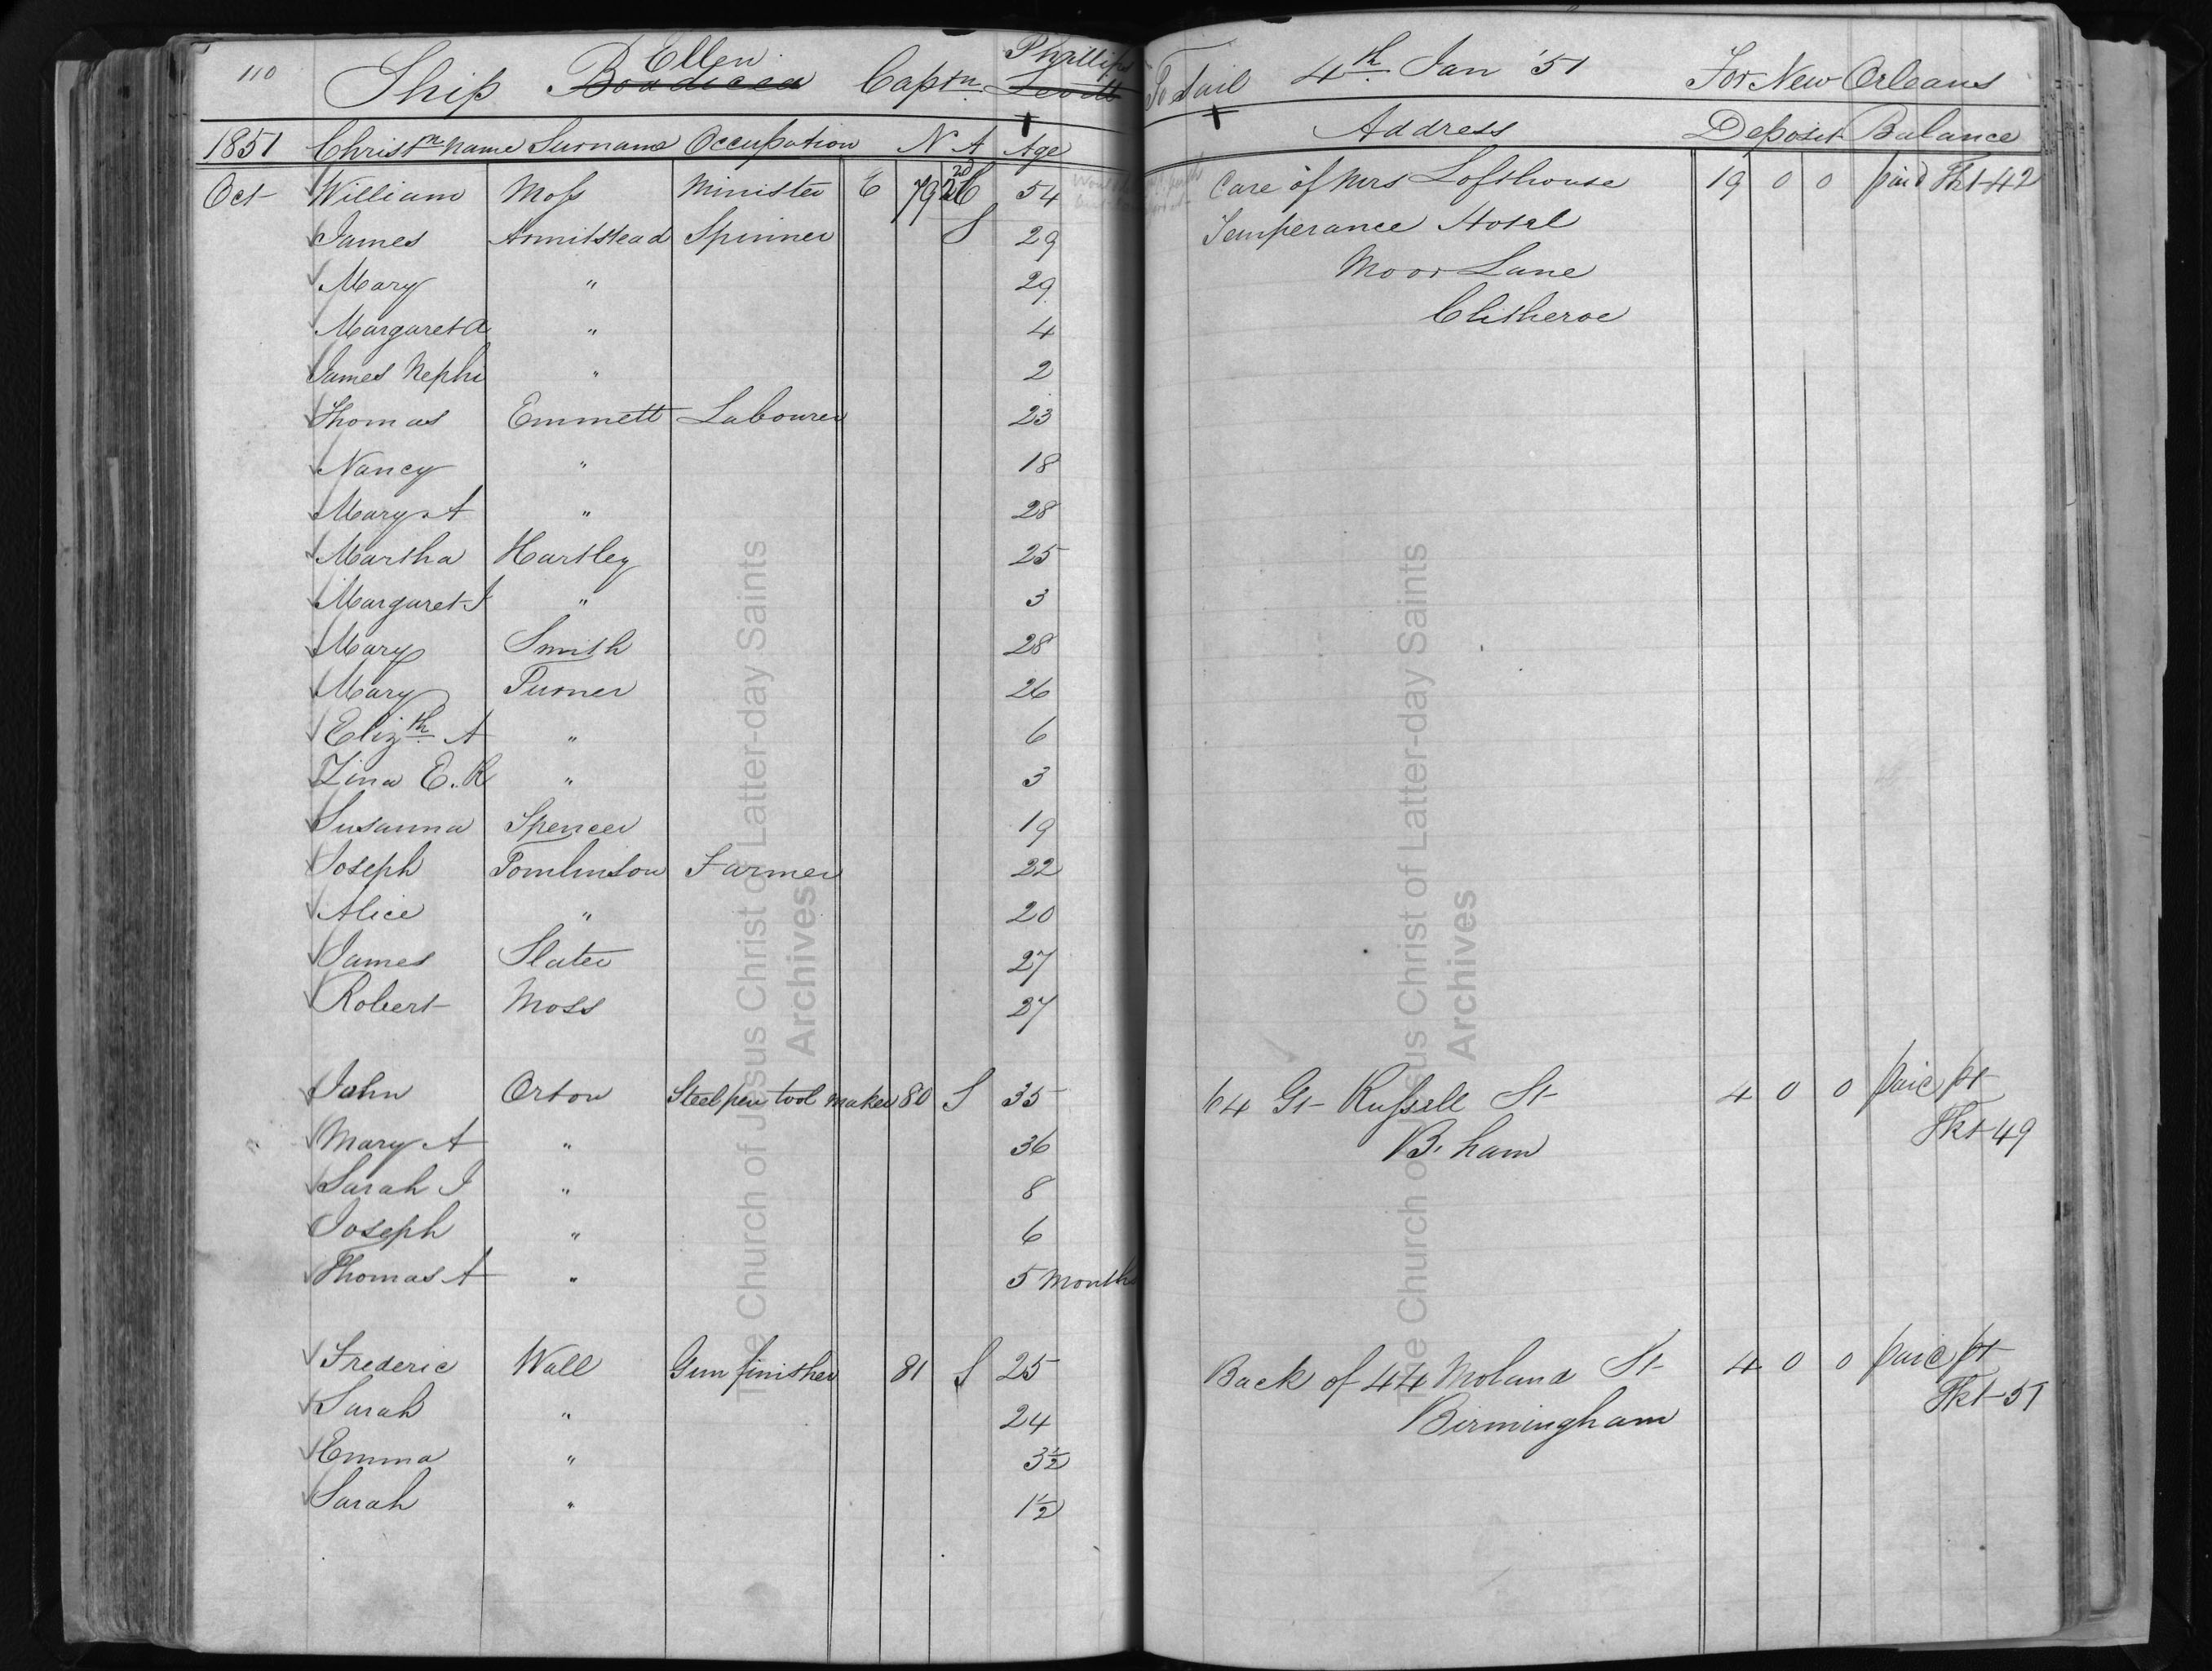 110 Ship Ellen Boadicea Captn. Phillips Lovett
1851 Christn name Surname Occupation N A Age
Oct William Moss Minister E 79 54
James Armitstead Spinner S 29
Mary " 29
Margaret A " 4
James Nephi " 2
Thomas Emmett Labourer 23
Nancy " 18
Mary A " 28
Martha Hartley 25
Margaret J " 3
Mary Smith 28
Mary Turner 26
Elizth. A " 6
Zina E. R " 3
Susanna Spencer 19
Joseph Tomlinson Farmer 22
Alice " 20
James Slater 27
Robert Moss 27
John Orton Steel pen tool maker 80 S 35
Mary A " 36
Sarah J " 8
Joseph " 6
Thomas A " 5 months
Frederic Wall Gun finisher 81 S 25
Sarah " 24
Emma " 3½
Sarah " 1½
To Sail 4th. Jan '51 For New Orleans
Address Deposit Balance
Care of Mrs Lofthouse 19 0 0 paid Tkt 42
Temperance Hotel
Moor Lane
Clitheroe
64 Gt Russell St 4 0 0 paid pt
B. ham Tkt 49
Back of 44 Moland St 4 0 0 paid pt
Birmingham Tkt 51
The Church of Jesus Christ of Latter-day Saints
Archives
The Church of Jesus Christ of Latter-day Saints
Archives